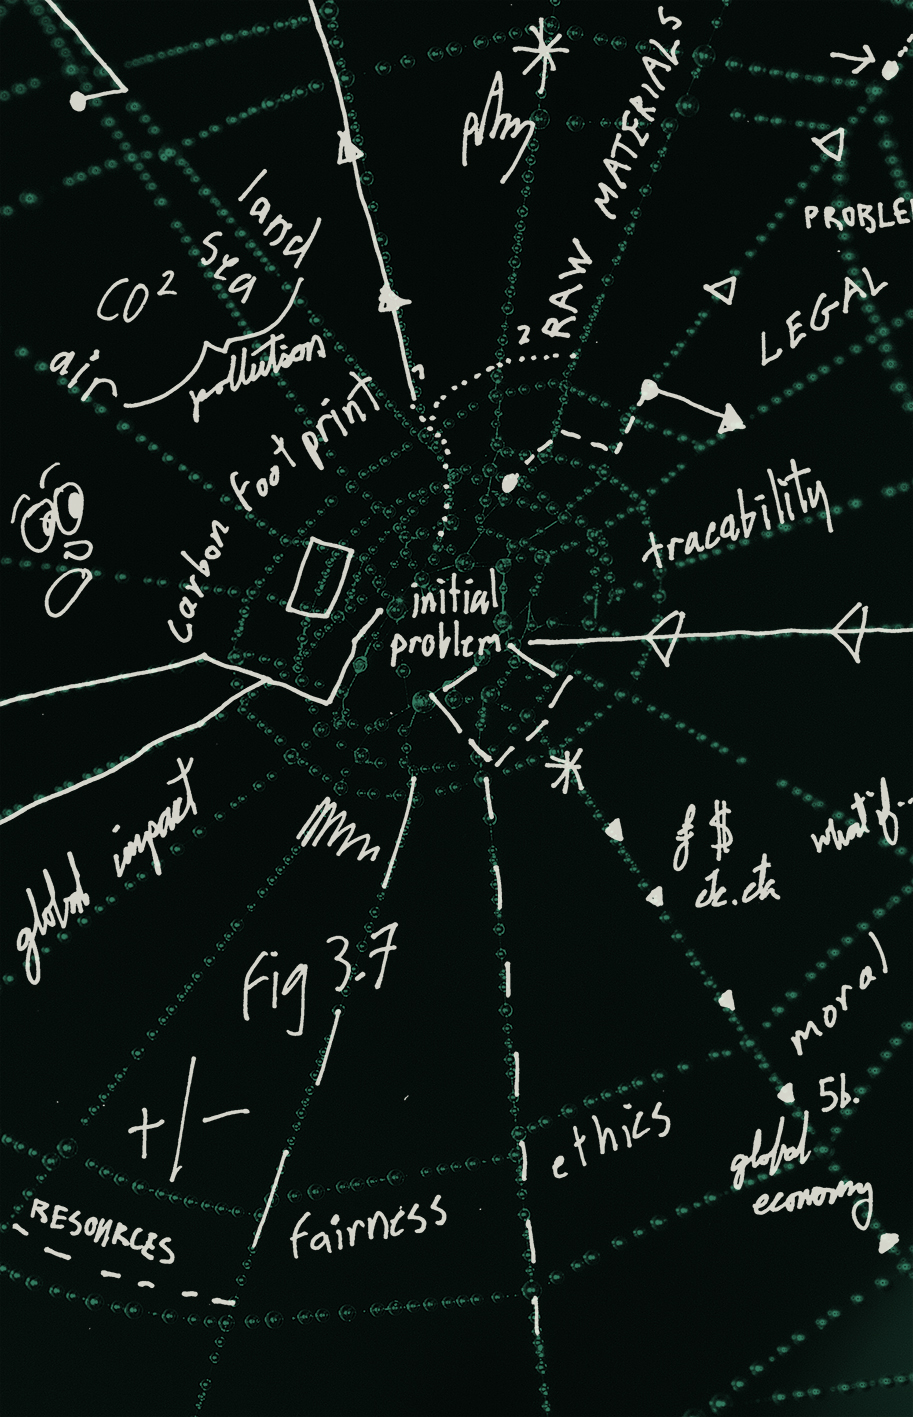 RAW MATERIALS
land
sea
CO²
air
pollution
PROBLE
LEGAL
2
carbon footprint
tracability
initial
problem
global impact
£ $
etc.etc
what if...
Fig 3.7
moral
+/-
5b.
global
economy
ethics
fairness
RESOURCES